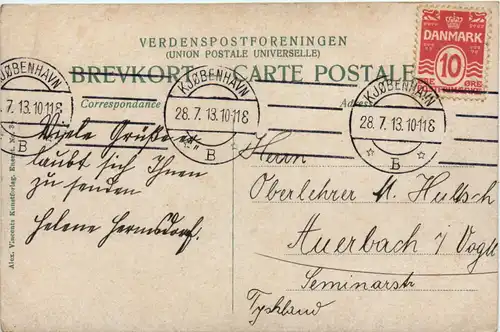 VERDENSPOSTFORENINGEN
(UNION POSTALE UNIVERSELLE)
BREVKORT – CARTE POSTALE
Correspondance
DANMARK
10
ØRE
KJØBENHAVN
7.13.10-11E
B
KJØBENHAVN
28.7.13.10-11E
B
KJØBENHAVN
28.7.13.10-11E
B
Viele Grüße er
laubt sich Ihnen
zu senden
Helene Hermsdorf.
Herrn
Oberlehrer
Auerbach i/Vogtl
Seminarstr
Tyskland
Alex. Vincents Kunstforlag. Eneret. N.